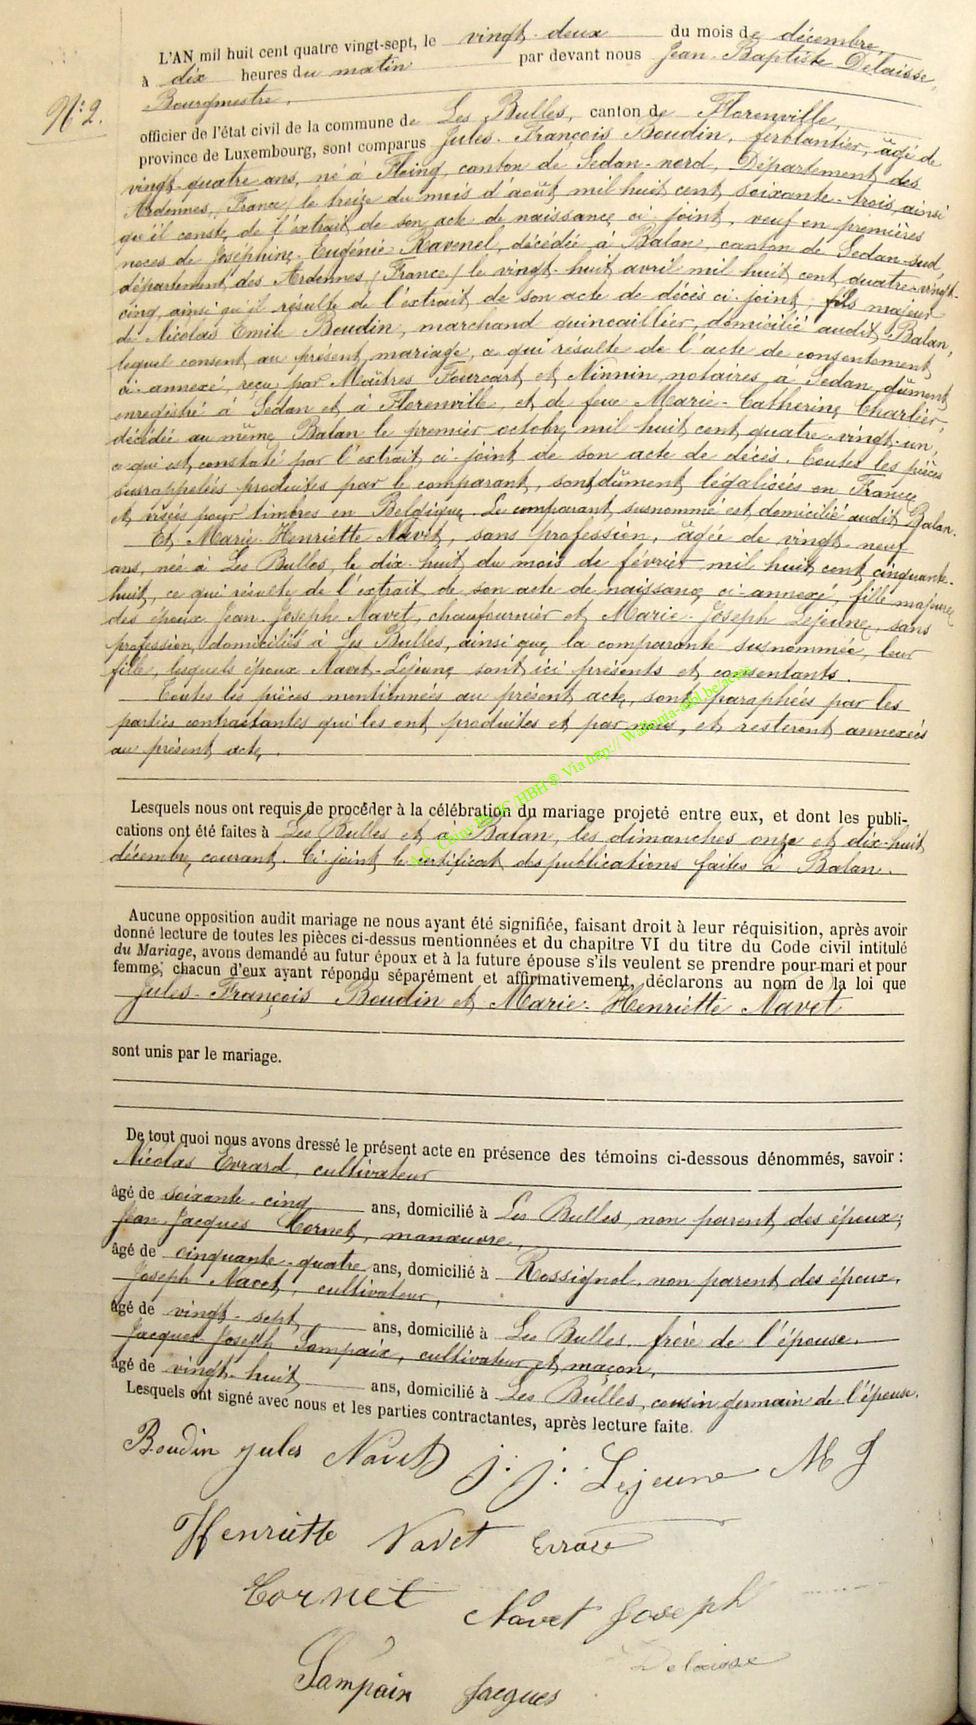 L'AN mil huit cent quatre vingt-sept, le vingt-deux du mois de décembre
à dix heures du matin par devant nous Jean-Baptiste Delaisse,
Bourgmestre,
N° 2.
officier de l'état civil de la commune de Les Bulles, canton de Florenville,
province de Luxembourg, sont comparus Jules-François Boudin, ferblantier, âgé de
vingt-quatre ans, né à Fleing, canton de Sedan-nord, Département des
Ardennes, (France) le treize du mois d'août mil huit cent soixante-trois, ainsi
qu'il conste de l'extrait de son acte de naissance ci-joint, veuf en premières
noces de Joséphine-Eugénie Ravenel, décédée à Balan, canton de Sedan-sud,
département des Ardennes (France) le vingt-huit avril mil huit cent quatre-vingt-
cinq, ainsi qu'il résulte de l'extrait de son acte de décès ci-joint, fils majeur
de Nicolas Emile Boudin, marchand quincaillier, domicilié audit Balan,
lequel consent au présent mariage, ce qui résulte de l'acte de consentement
ci-annexé, reçu par Maîtres Fourcart et Ninnin, notaires à Sedan, dûment
enregistré à Sedan et à Florenville, et de feue Marie-Catherine Charlier,
décédée au même Balan le premier octobre mil huit cent quatre-vingt-un,
ce qui est constaté par l'extrait ci-joint de son acte de décès. Toutes les pièces
susrappelées produites par le comparant, sont dûment légalisées en France
et visées pour timbres en Belgique. Le comparant susnommé est domicilié audit Balan.
Et Marie-Henriette Navet, sans profession, âgée de vingt-neuf
ans, née à Les Bulles, le dix-huit du mois de février mil huit cent cinquante-
huit, ce qui résulte de l'extrait de son acte de naissance ci-annexé, fille majeure
des époux Jean-Joseph Navet, chaufournier et Marie-Joseph Lejeune, sans
profession, domiciliés à Les Bulles, ainsi que la comparante susnommée, leur
fille, lesquels époux Navet-Lejeune sont ici présents et consentants.
Toutes les pièces mentionnées au présent acte, sont paraphées par les
parties contractantes qui les ont produites et par nous, et resteront annexées
au présent acte.
Lesquels nous ont requis de procéder à la célébration du mariage projeté entre eux, et dont les publi-
cations ont été faites à Les Bulles et à Balan, les dimanches onze et dix-huit
décembre courant. Ci-joint le certificat des publications faites à Balan.
Aucune opposition audit mariage ne nous ayant été signifiée, faisant droit à leur réquisition, après avoir
donné lecture de toutes les pièces ci-dessus mentionnées et du chapitre VI du titre du Code civil intitulé
du Mariage, avons demandé au futur époux et à la future épouse s'ils veulent se prendre pour mari et pour
femme; chacun d'eux ayant répondu séparément et affirmativement, déclarons au nom de la loi que
Jules-François Boudin et Marie-Henriette Navet
sont unis par le mariage.
De tout quoi nous avons dressé le présent acte en présence des témoins ci-dessous dénommés, savoir :
Nicolas Evrard, cultivateur
âgé de soixante-cinq ans, domicilié à Les Bulles, non parent des époux;
Jean-Jacques Cornet, manœuvre,
âgé de cinquante-quatre ans, domicilié à Rossignol, non parent des époux,
Joseph Navet, cultivateur,
âgé de vingt-sept ans, domicilié à Les Bulles, frère de l'épouse.
Jacques Joseph Lampaix, cultivateur et maçon,
âgé de vingt-huit ans, domicilié à Les Bulles, cousin germain de l'épouse.
Lesquels ont signé avec nous et les parties contractantes, après lecture faite.
Boudin Jules Navet J: J: Lejeune M J
Henriette Navet Evrard
Cornet Navet Joseph
Delaisse
Lampaix Jacques